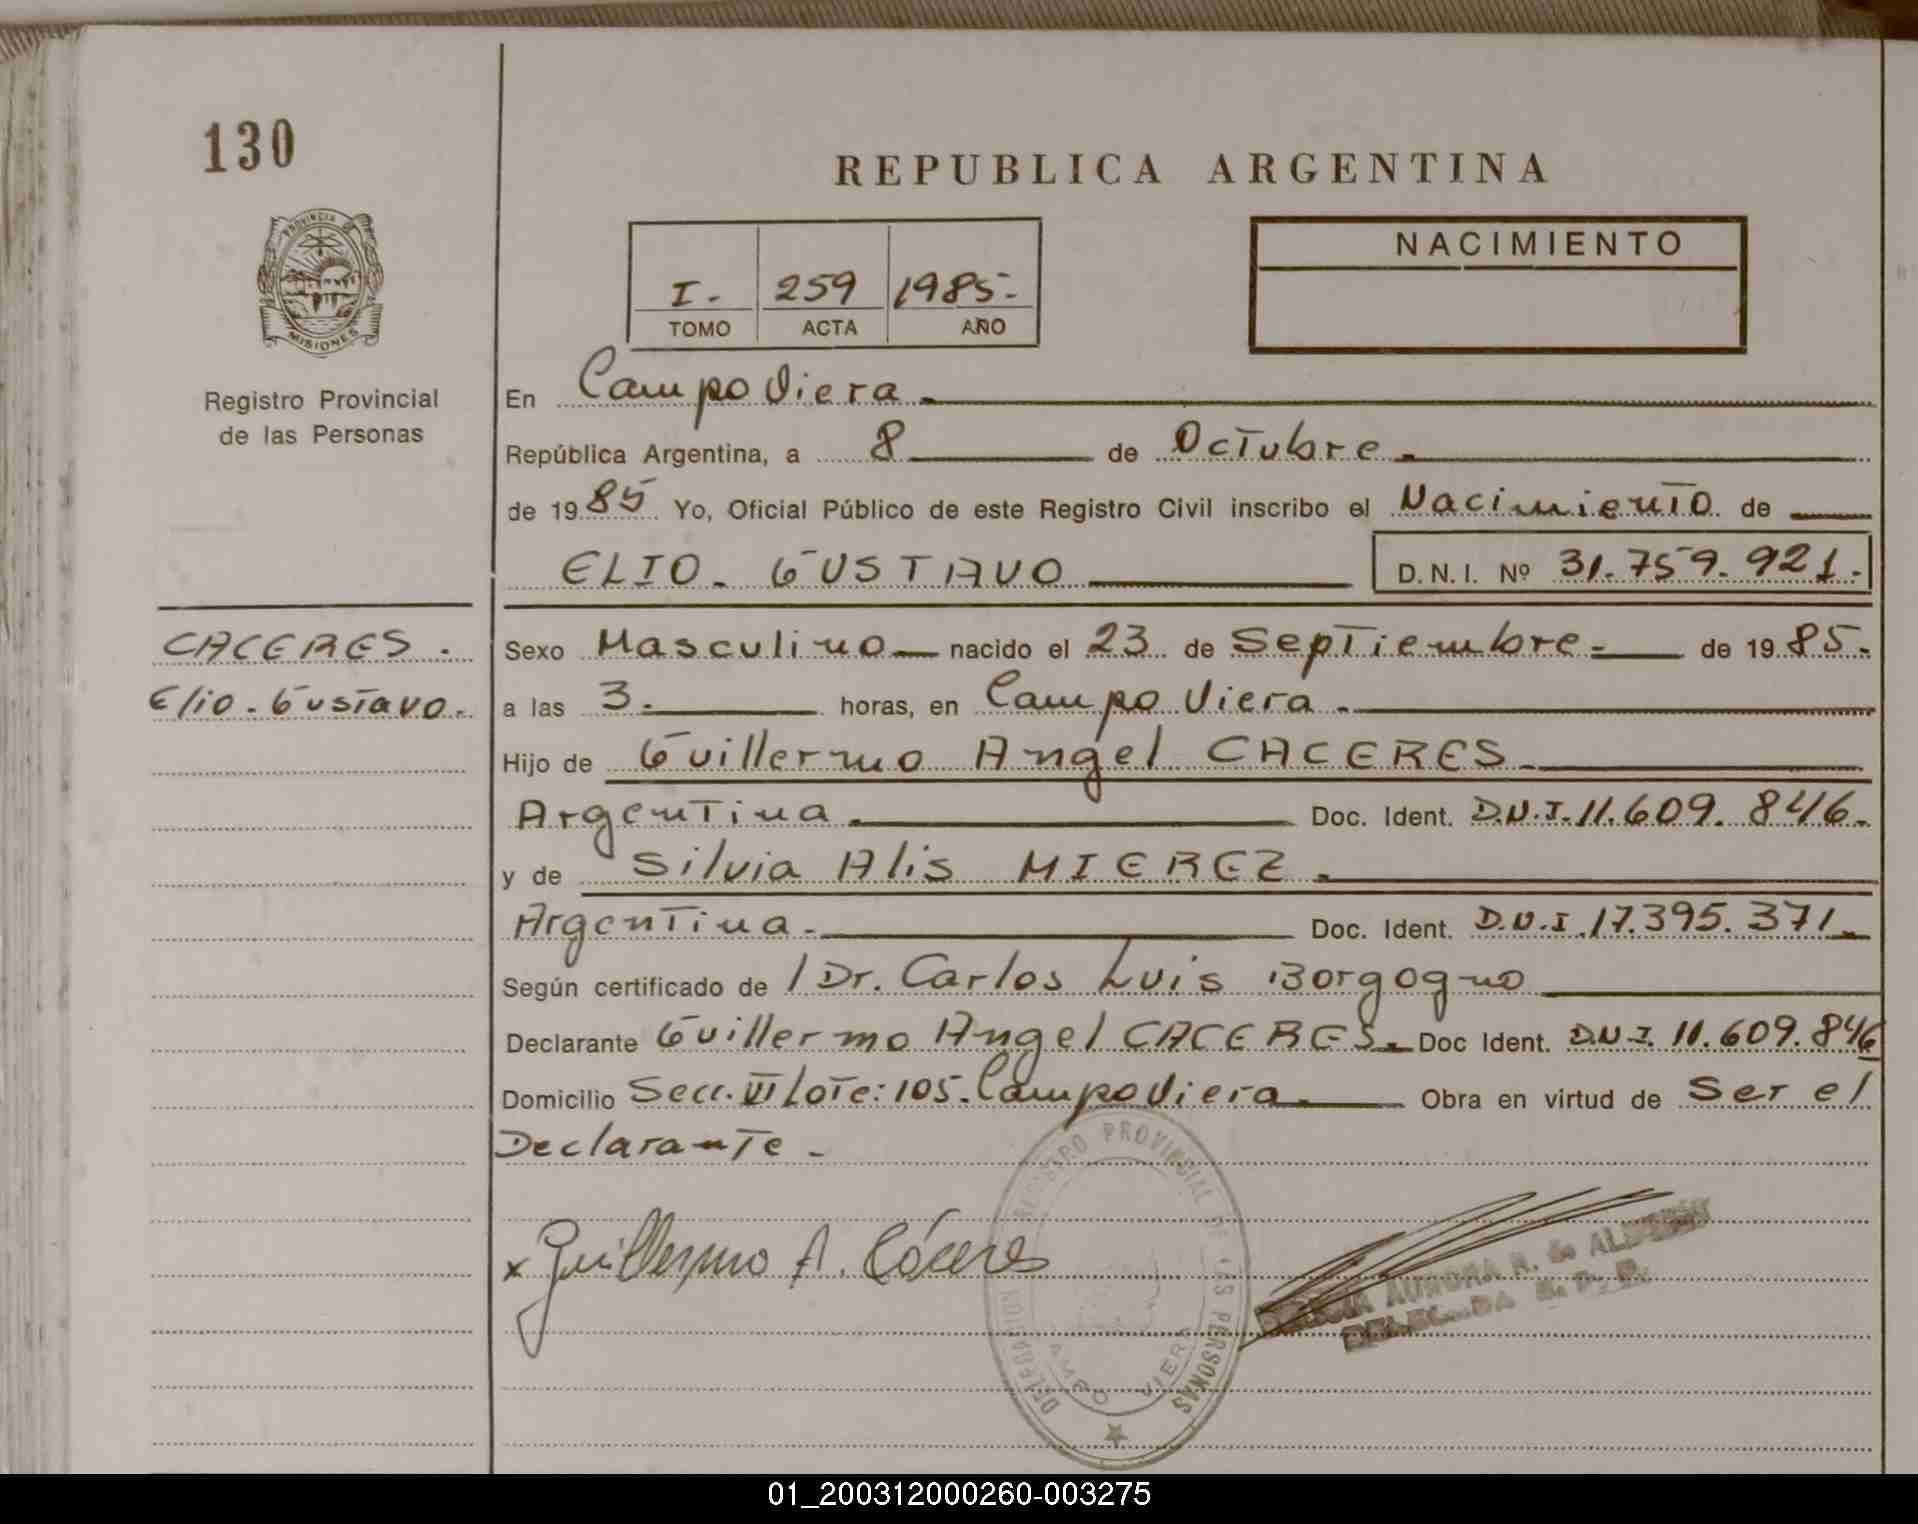 130
REPUBLICA ARGENTINA
PROVINCIA DE
MISIONES
Registro Provincial
de las Personas
NACIMIENTO
I. 259 1985-
TOMO ACTA AÑO
En Campo Viera.
República Argentina, a 8 de Octubre.
de 1985 Yo, Oficial Público de este Registro Civil inscribo el Nacimiento de
ELIO. GUSTAVO D.N.I. Nº 31.759.921.
CACERES.
Elio. Gustavo.
Sexo Masculino nacido el 23 de Septiembre. de 1985.
a las 3. horas, en Campo Viera.
Hijo de Guillermo Angel CACERES.
Argentina. Doc. Ident. D.N.I. 11.609.846.
y de Silvia Alis MIEREZ.
Argentina. Doc. Ident. D.N.I. 17.395.371.
Según certificado de / Dr. Carlos Luis Borgogno
Declarante Guillermo Angel CACERES. Doc Ident. D.N.I. 11.609.846
Domicilio Secc. VI Lote: 105. Campo Viera. Obra en virtud de Ser el
Declarante.
x Guillermo A. Cáceres
DELEGACION REGISTRO PROVINCIAL DE LAS PERSONAS
CAMPO VIERA
AURORA N. de
DELEGADA R. P. P.
01_200312000260-003275